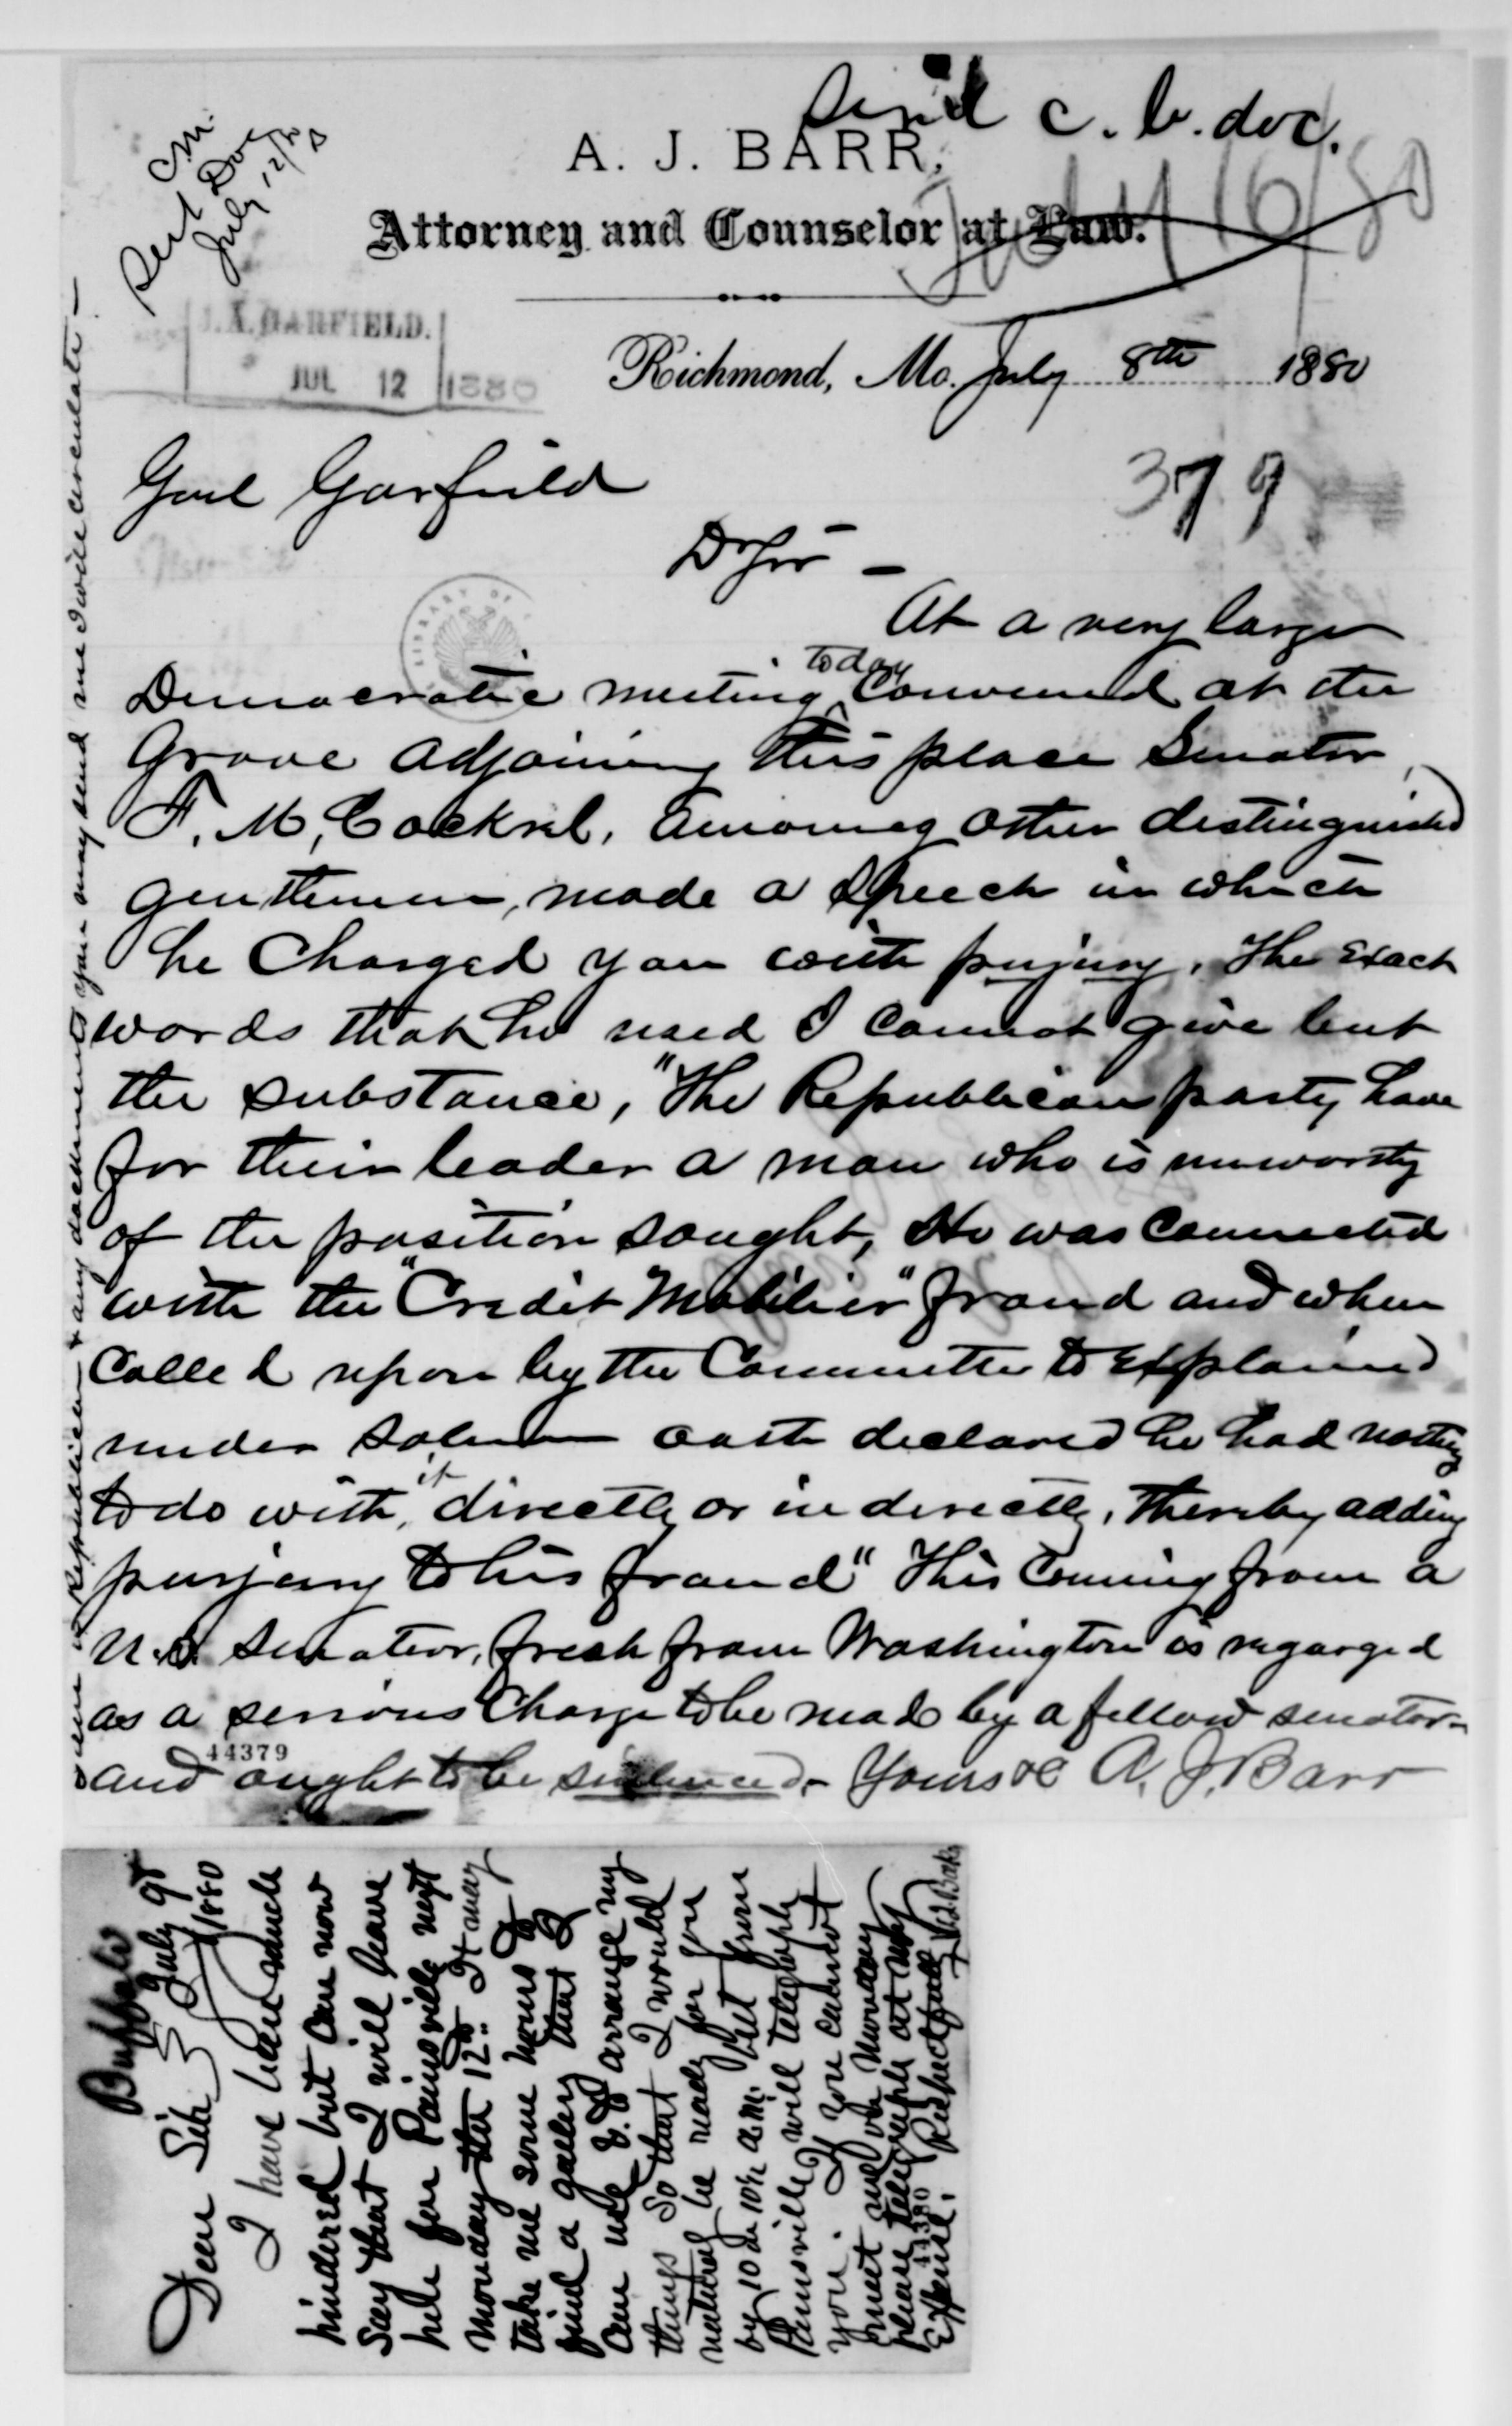 Send c. b. doc.
July 16/80
C M.
Sent Doc
July 12/80
A. J. BARR,
Attorney and Counselor at Law.
J. A. GARFIELD.
JUL 12 1880
Richmond, Mo. July 8th 1880
379
Genl Garfield
D Sir –
At a very large
Democratic meeting today Convened at the
Grove adjoining this place Senator
F. M, Cockrel, among other distinguished
gentlemen, made a speech in which
he Charged you with purjury. The exact
words that he used I cannot give but
the substance, "The Republican party have
for their leader a man who is unworthy
of the position sought, He was Connected
with the "Credit Mobilier" fraud and when
Called upon by the Committee to Explain
under solemn oath declared he had nothing
to do with it directly or indirectly, thereby adding
purjury to his fraud" This Coming from a
U.S. Senator, fresh from Washington is regarged
as a serious Charge to be made by a fellow senator–
and ought to be silenced– Yours &c A. J. Barr
44379
Republican & any documents you may send me I will circulate –
Buffalo
July 9th
1880
Dear Sir
I have been much
hindered but can now
say that I will leave
here for Painsville next
Monday the 12th. It may
take me some hours to
find a gallery that I
can use & to arrange my
things so that I would
be ready for you
by 10 or 10½ a.m. but from
Painsville will telegraph
you. If you cannot
meet me on Monday
please telegraph at my
Expense. Respectfully
44380